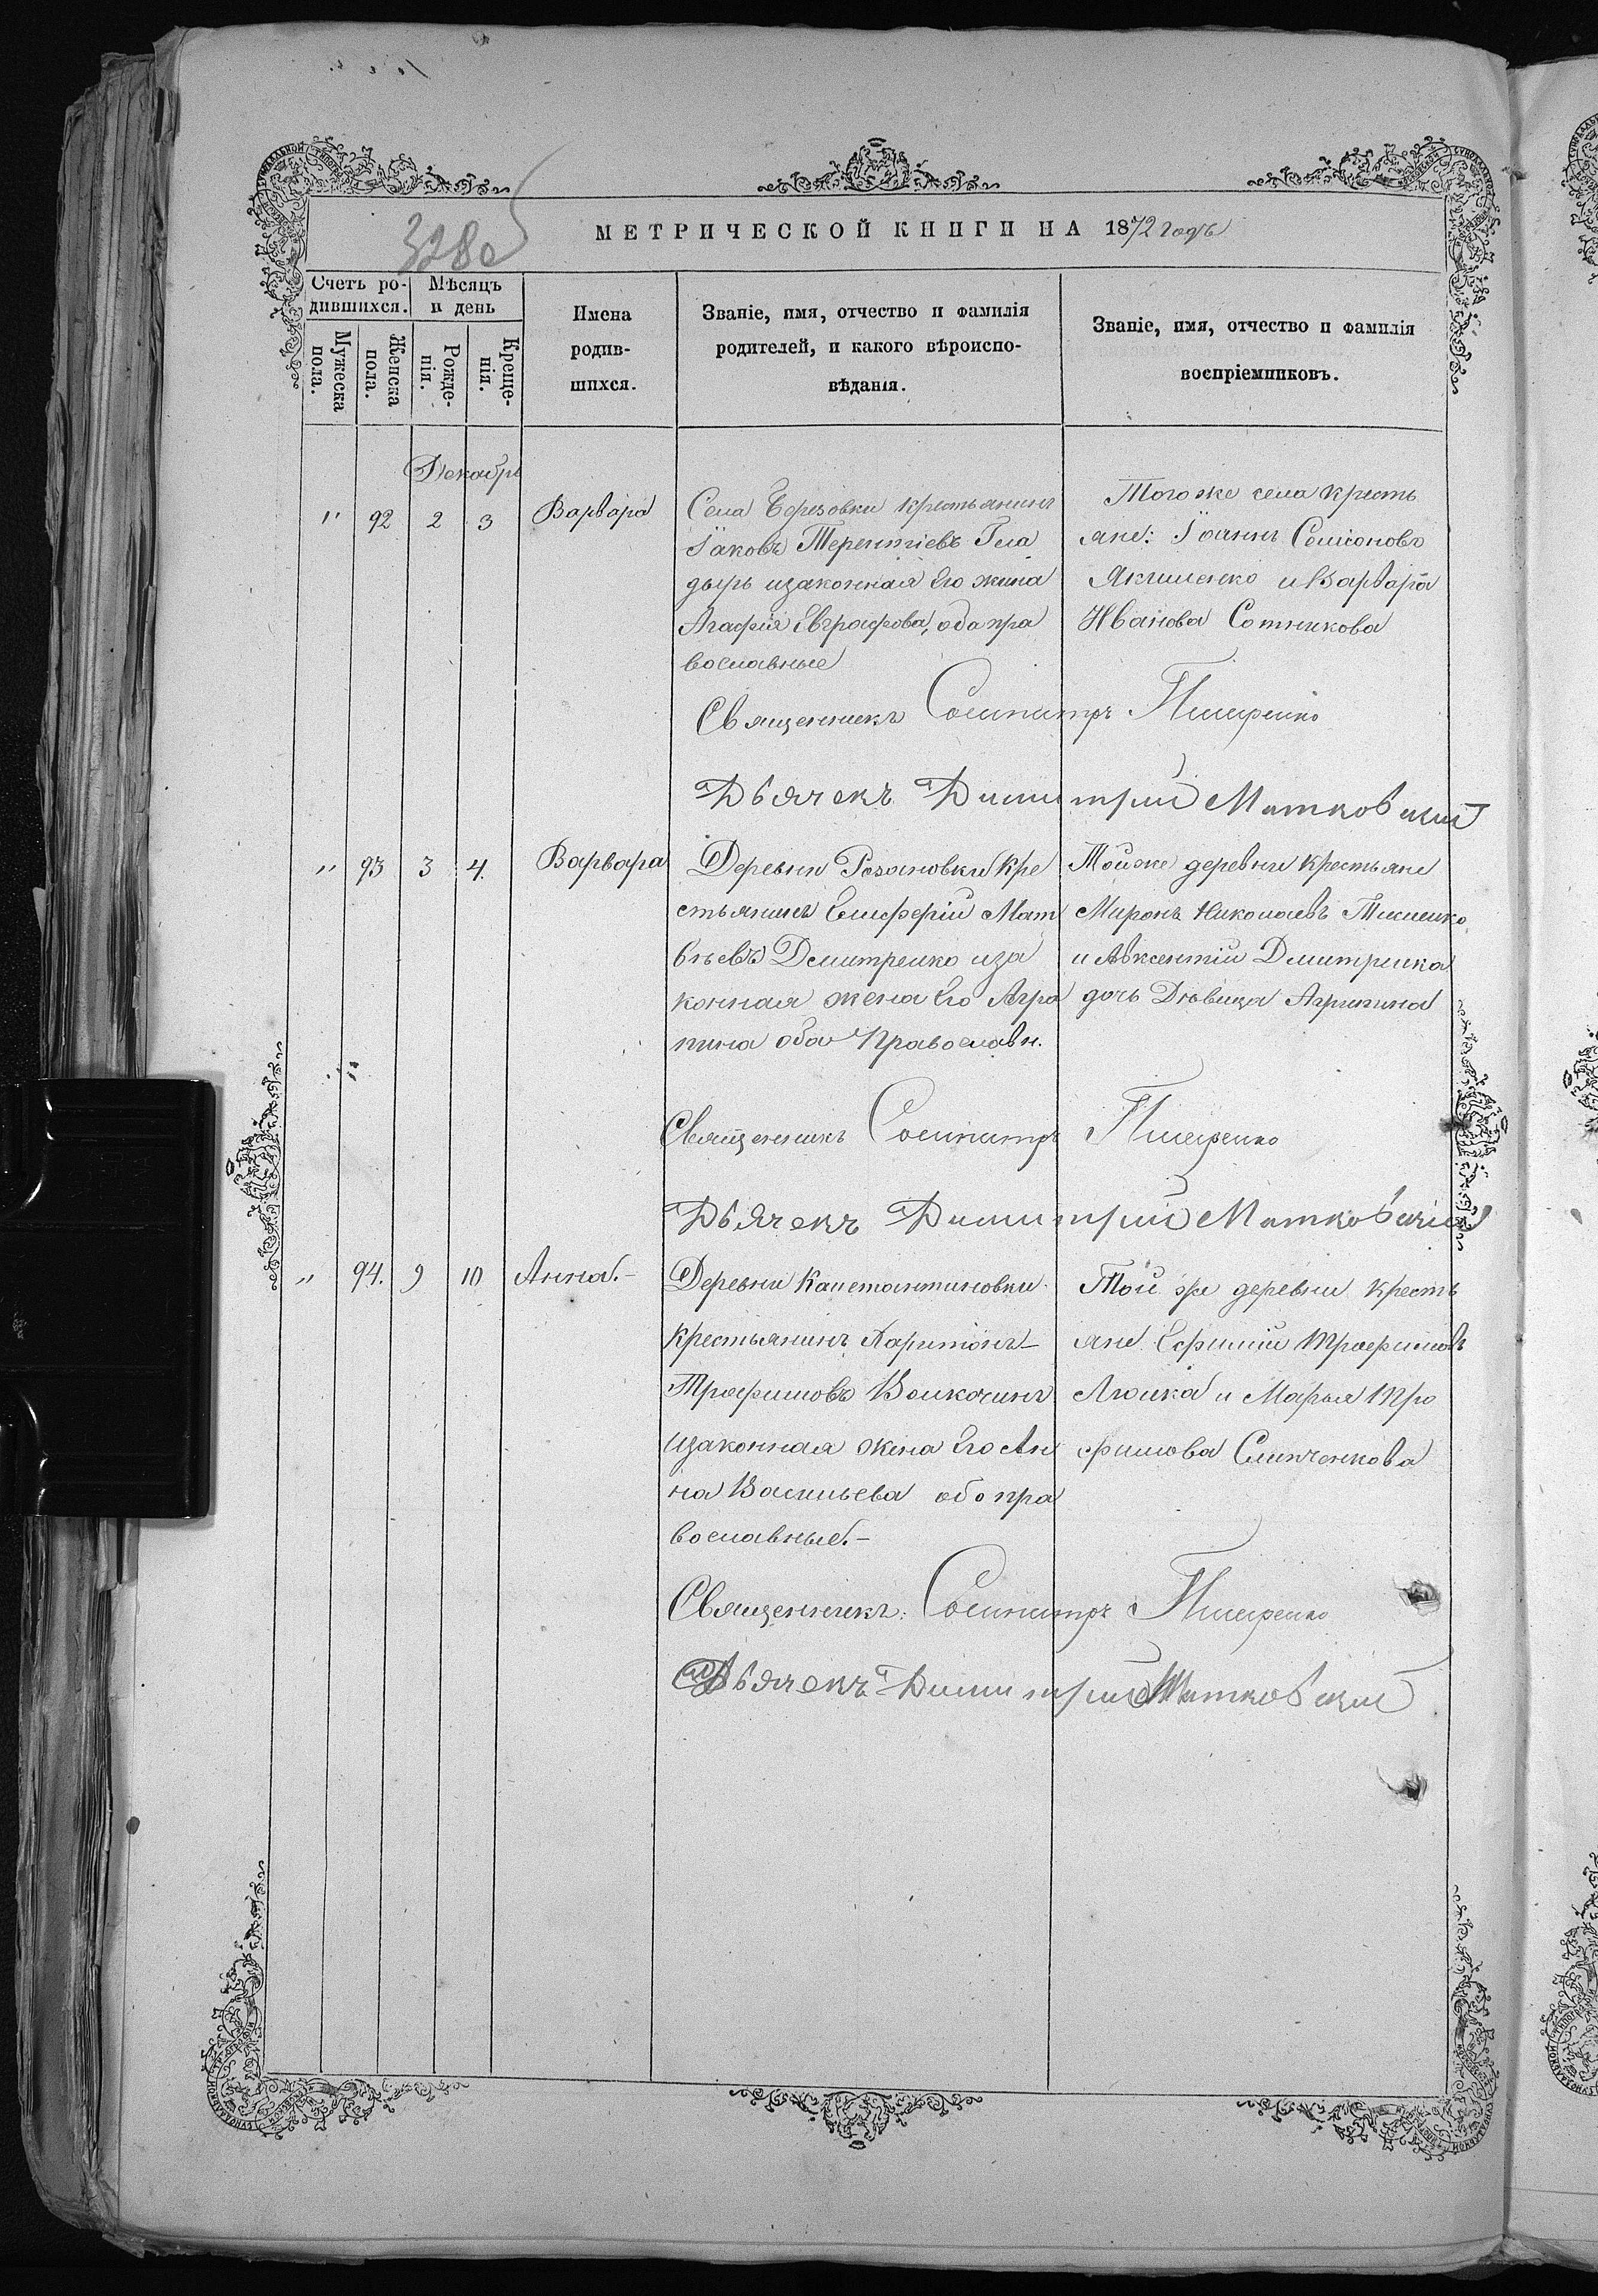 328 об
МЕТРИЧЕСКОЙ КНИГИ НА 1872 годъ
Счетъ ро-
дившихся.
Мѣсяцъ
и день
Мужеска
пола.
Женска
пола.
Рожде-
нія.
Креще-
нія.
Имена
родив-
шихся.
Званіе, имя, отчество и фамилія
родителей, и какого вѣроиспо-
вѣданія.
Званіе, имя, отчество и фамилія
воспріемниковъ.
Декабрь
" 92 2 3 Варвара
Села Березовки крестьянинъ
Іаковъ Терентіевъ Гла
дырь изаконная Его жена
Агафія Евграфова, оба пра
вославные
Того же села кресть
яне: Іоаннъ Семіоновъ
Якименко и Варвара
Иванова Сотникова
Священникъ Сосипатръ
Дьячекъ Димитрій Матковскій
" 93 3 4. Варвара
Деревни Розановки Кре
стьянинъ Елиферій Мат
вѣевъ Демитренко иза
конная жена Его Агра
пина оба Православн.
Той же деревни Крестьяне
Миронъ Николаевъ
и Авксентій Дмитренка
дочь Дѣвица Агрипина
Священникъ Сосипатръ
Дьячекъ Димитрій Матковскій
" 94. 9 10 Анна.-
Деревни Канстантиновки
Крестьянинъ Харитонъ-
Трофимовъ Волкочинъ
изаконная жена Его Ан
на Васильева обо пра
вославные.-
Той же деревни Кресть
яне Ефимій Трофимовъ
Люлка и Марья Тро
фимова Слипченкова
Священникъ: Сосипатръ
Дьячекъ Димитрій Матковскій